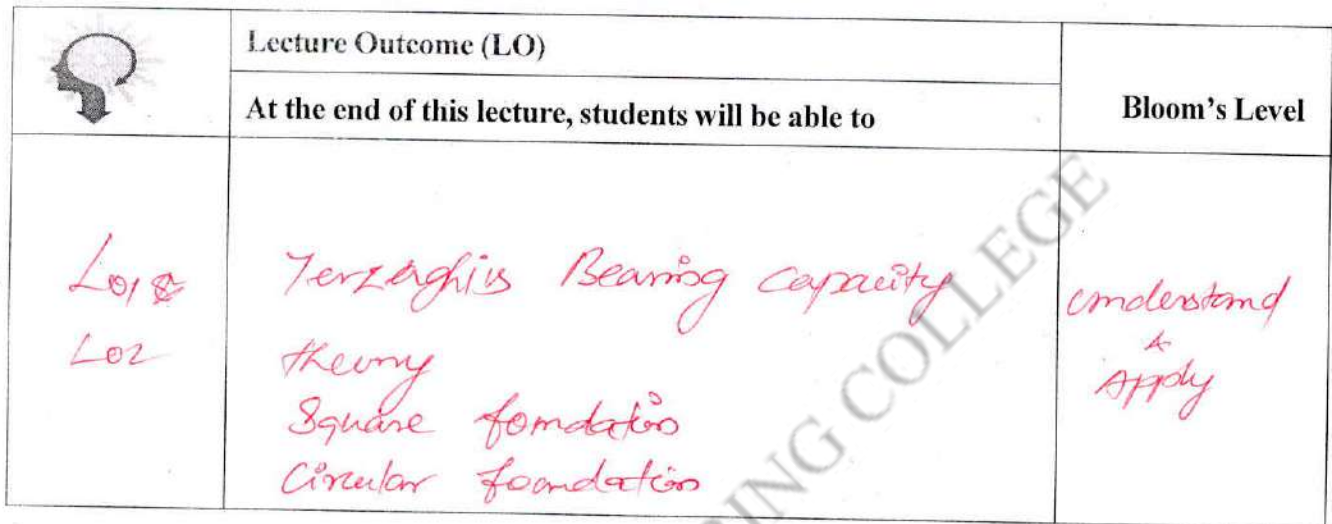 Lecture Outcome (LO)
At the end of this lecture, students will be able to
Bloom's Level
LO1 &
LO2
Terzaghi's Bearing capacity
theory
Square foundation
Circular foundation
understand
&
Apply
ING COLLEGE